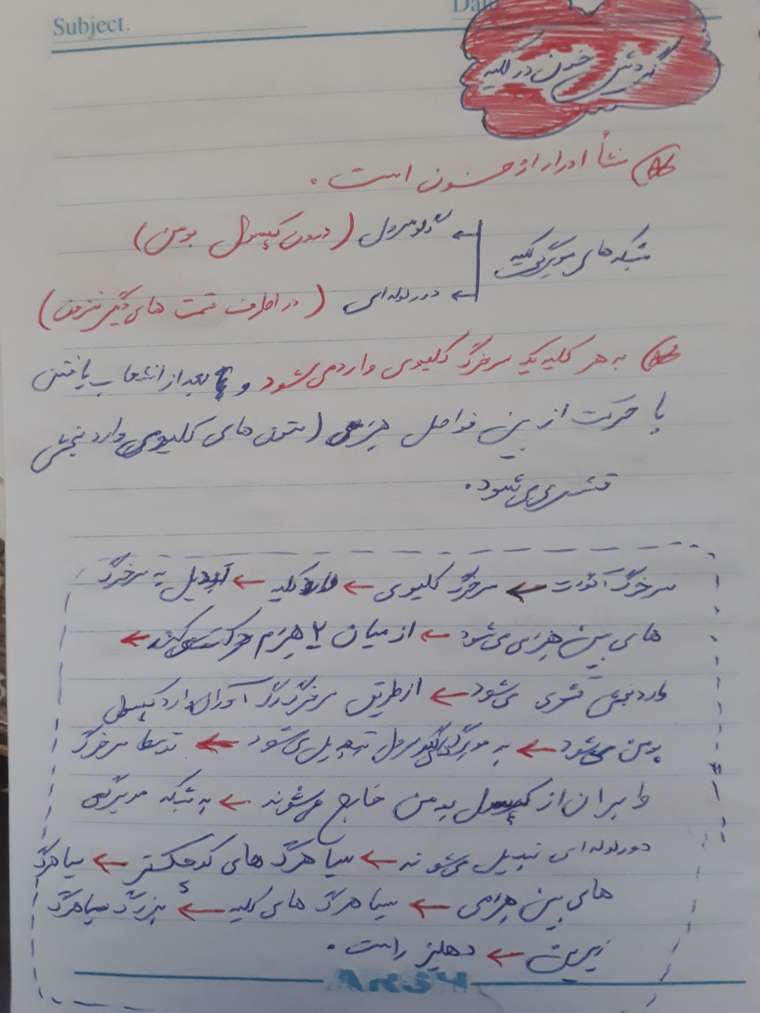 Subject.
Date
گردش خون در کلیه
منشأ ادرار از خون است.
شبکه های مویرگی کلیه
گلومرول (درون کپسول بومن)
دور لوله ای (در اطراف قسمت های دیگر نفرون)
به هر کلیه یک سرخرگ کلیوی وارد می شود و بعد از انشعاب یافتن
با حرکت از بین فواصل هرمی (ستون های کلیوی) وارد بخش
قشری می شود.
سرخرگ آئورت ← سرخرگ کلیوی ← کلیه ← تبدیل به سرخرگ
های بین هرمی می شود ← از میان ۲ هرم حرکت می کند ←
وارد بخش قشری می شود ← از طریق سرخرگ آوران وارد کپسول
بومن می شود ← به مویرگی گلومرول تبدیل می شود ← توسط سرخرگ
وابران از کپسول بومن خارج می شوند ← به شبکه مویرگی
دور لوله ای تبدیل می شوند ← سیاهرگ های کوچکتر ← سیاهرگ
های بین هرمی ← سیاهرگ های کلیه ← بزرگ سیاهرگ
زیرین ← دهلیز راست.
ARSH